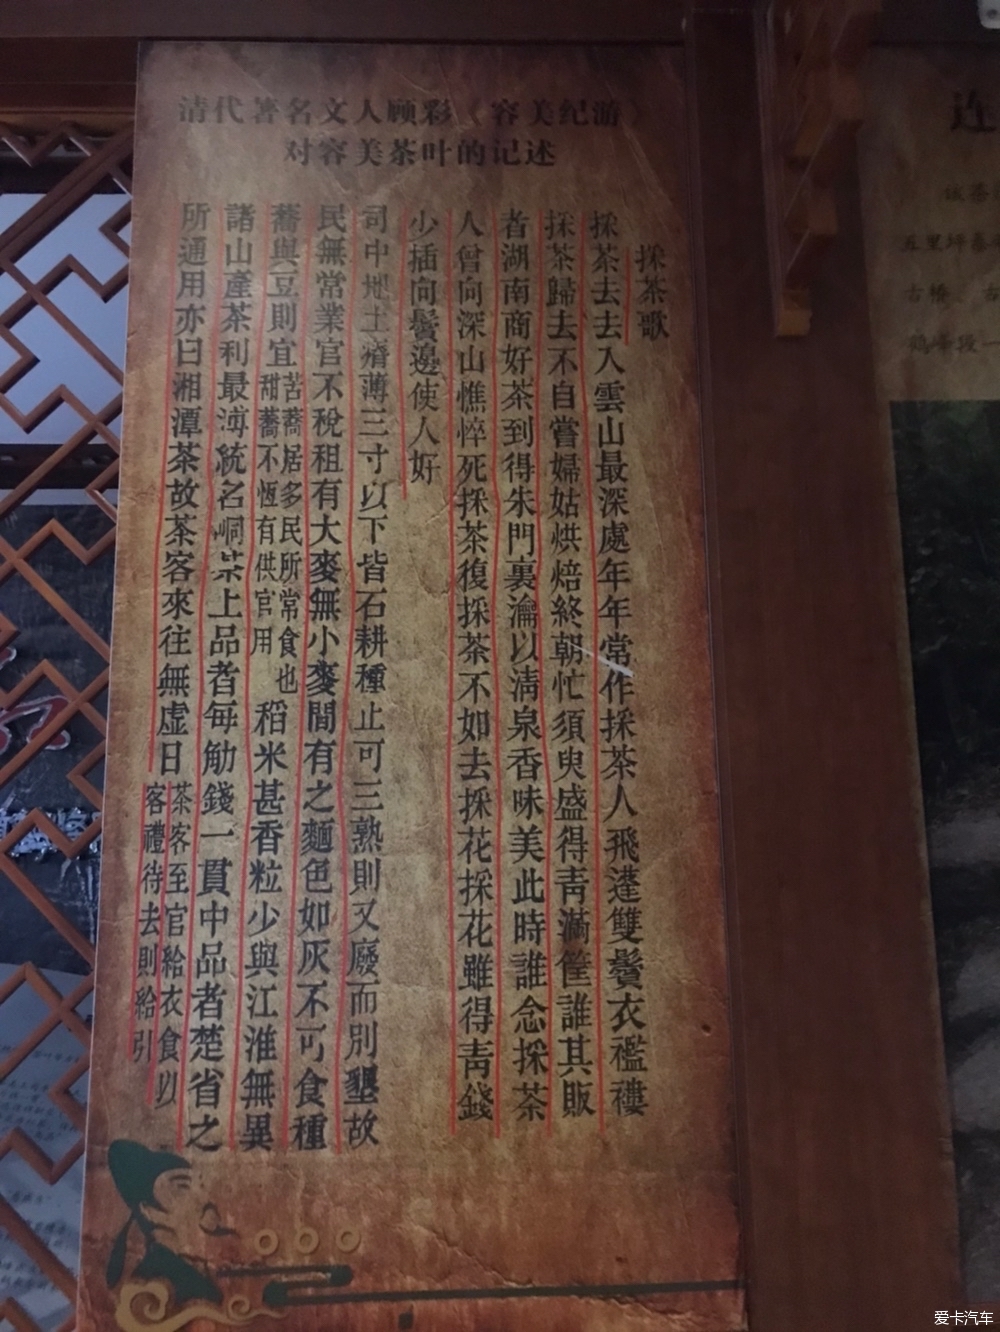 清代著名文人顾彩《容美纪游》
对容美茶叶的记述
採茶歌
採茶去去入雲山最深處年年常作採茶人飛蓬雙鬢衣襤褸
採茶歸去不自嘗婦姑烘焙終朝忙須臾盛得青滿筐誰其販
者湖南商好茶到得朱門裏瀹以清泉香味美此時誰念採茶
人曾向深山憔悴死採茶復採茶不如去採花採花雖得青錢
少插向鬢邊使人好
司中地土瘠薄三寸以下皆石耕種止可三熟則又廢而別墾故
民無常業官不稅租有大麥無小麥間有之麵色如灰不可食種
蕎與豆則宜苦蕎居多民所常食也甜蕎不恆有供官用稻米甚香粒少與江淮無異
諸山產茶利最溥統名峒茶上品者每觔錢一貫中品者楚省之
所通用亦曰湘潭茶故茶客來往無虛日茶客至官給衣食以客禮待去則給引
连
五里坪
古橋、古
爱卡汽车